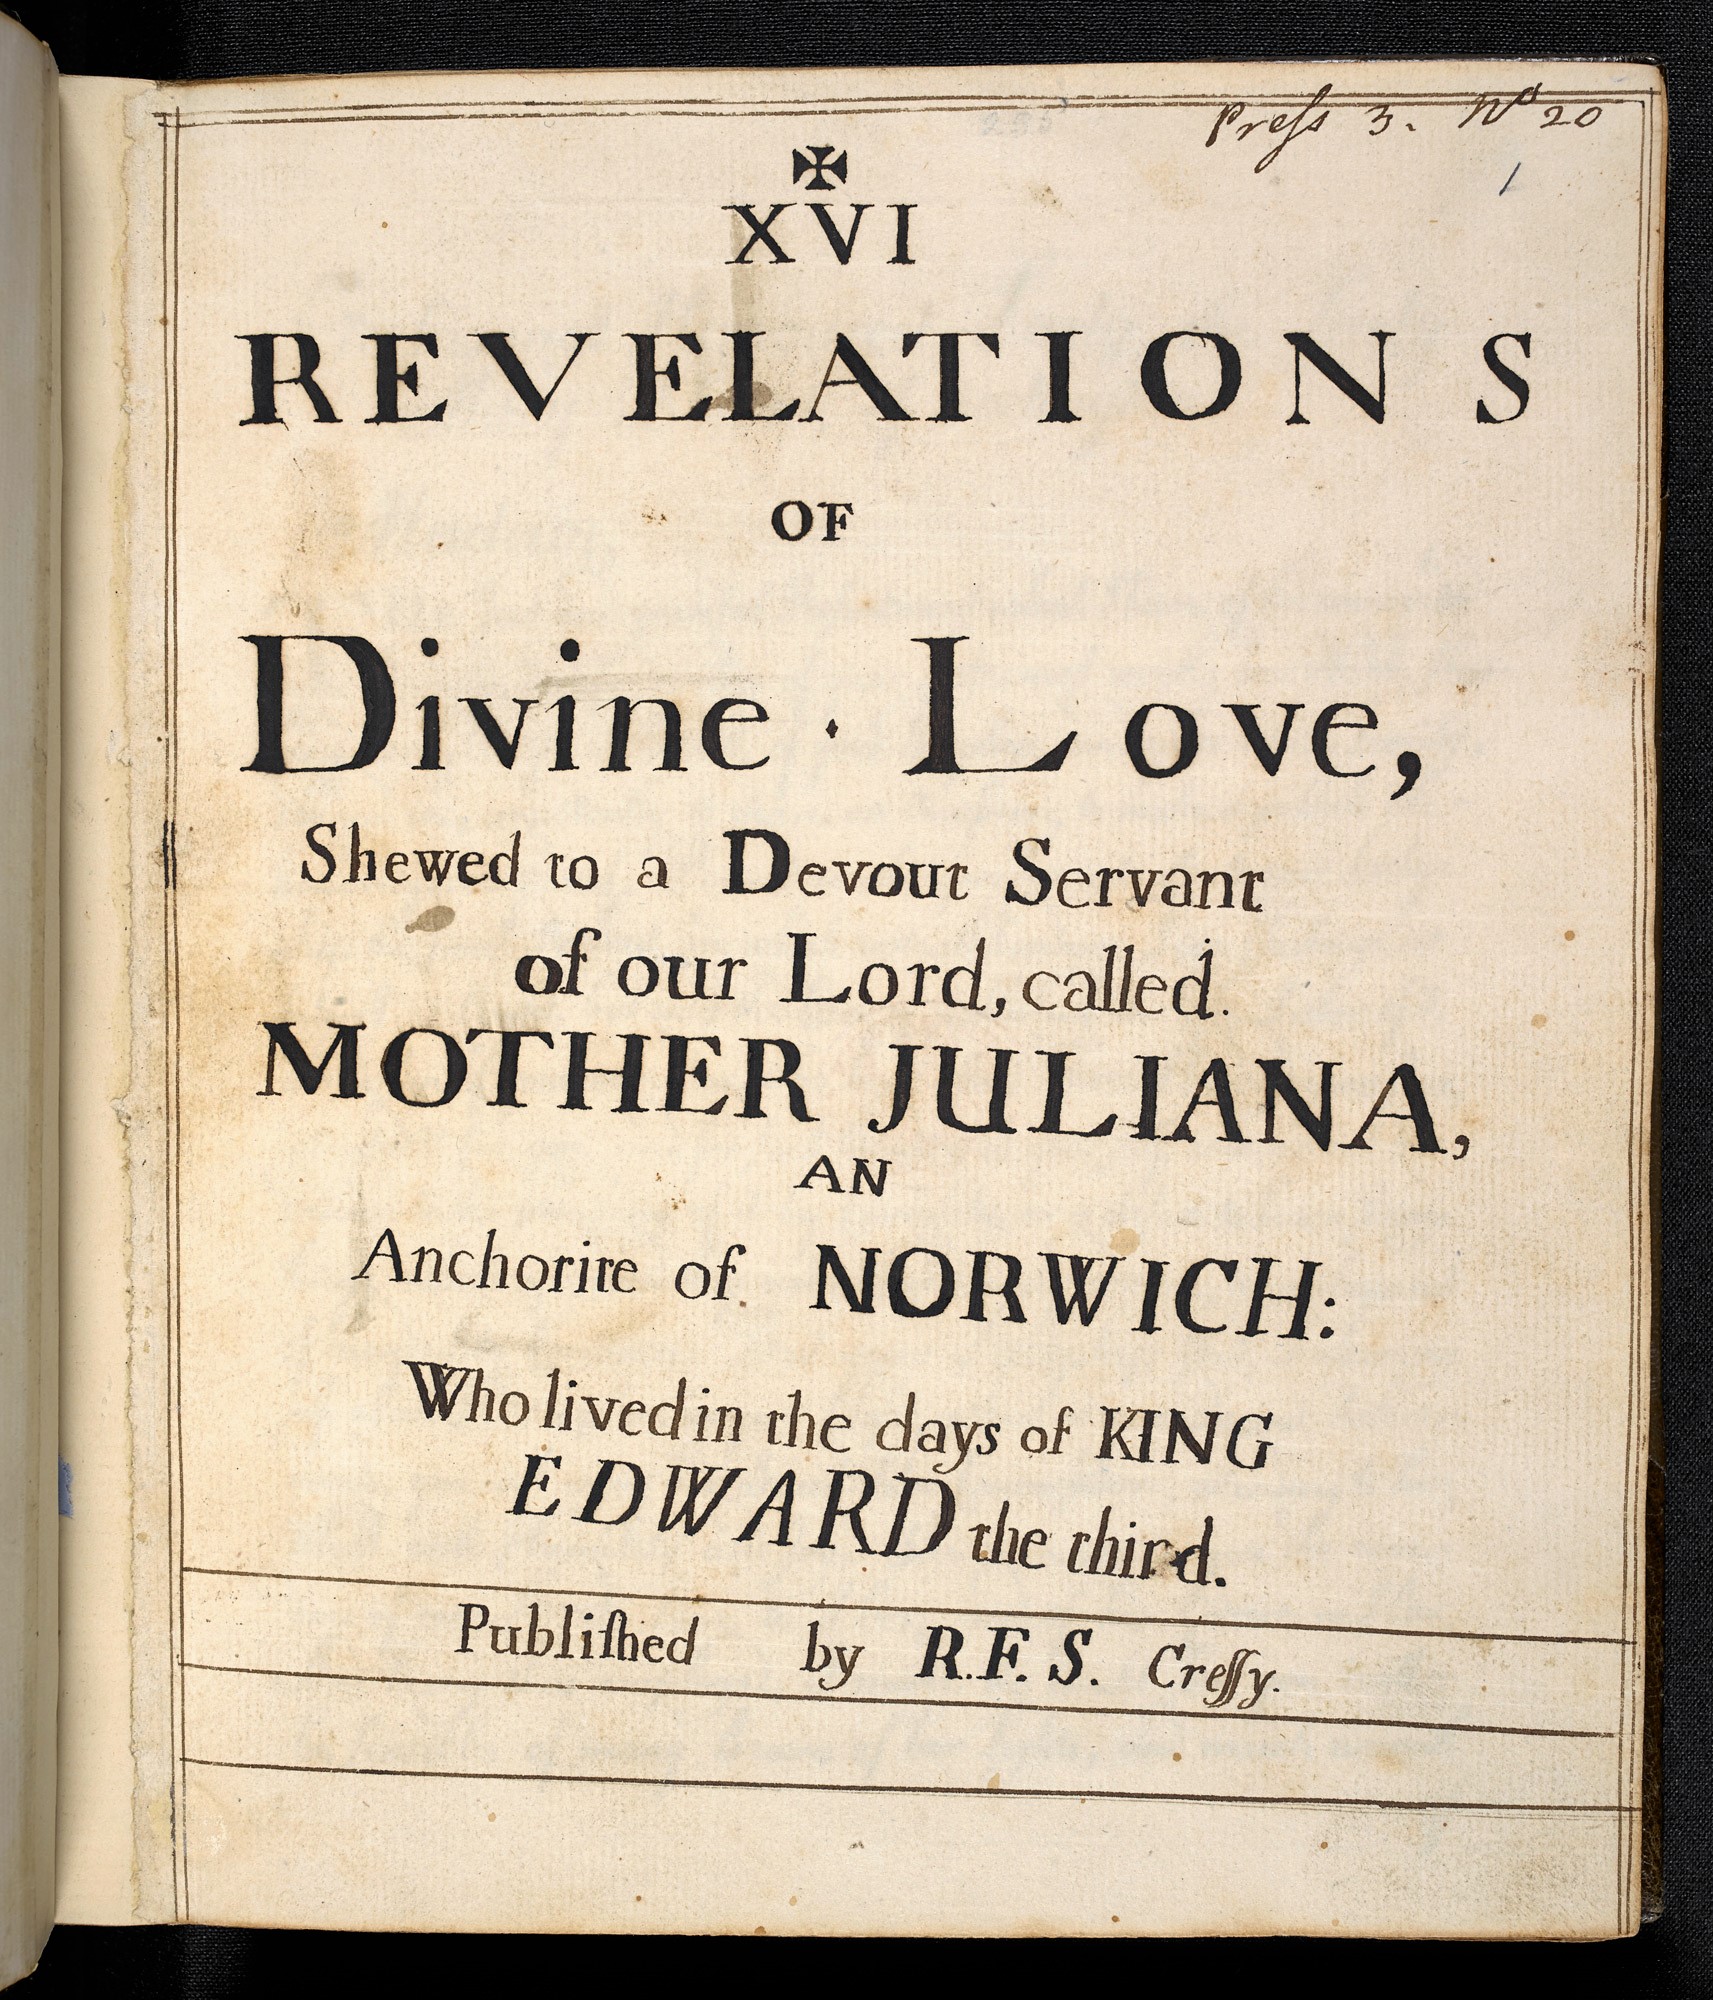 Preſs 3. No 20
1
✠
XVI
REVELATIONS
OF
Divine · Love,
Shewed to a Devout Servant
of our Lord, called.
MOTHER JULIANA,
AN
Anchorite of NORWICH:
Who lived in the days of KING
EDWARD the third.
Publiſhed by R.F.S. Creſſy.